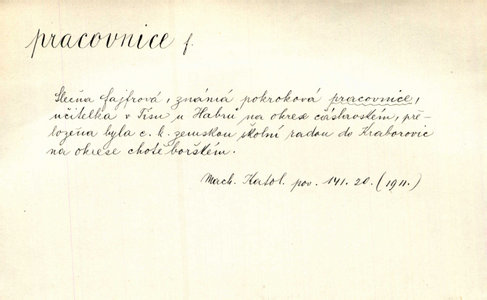 pracovnice f.
Slečna Fajfrová, známá pokroková pracovnice,
učitelka v Tisu u Habrů na okrese čáslavském, pře-
ložena byla c. k. zemskou školní radou do Kraborovic
na okrese chotěbořském.
Mach. Katol. pov. 141. 20. (1911.)